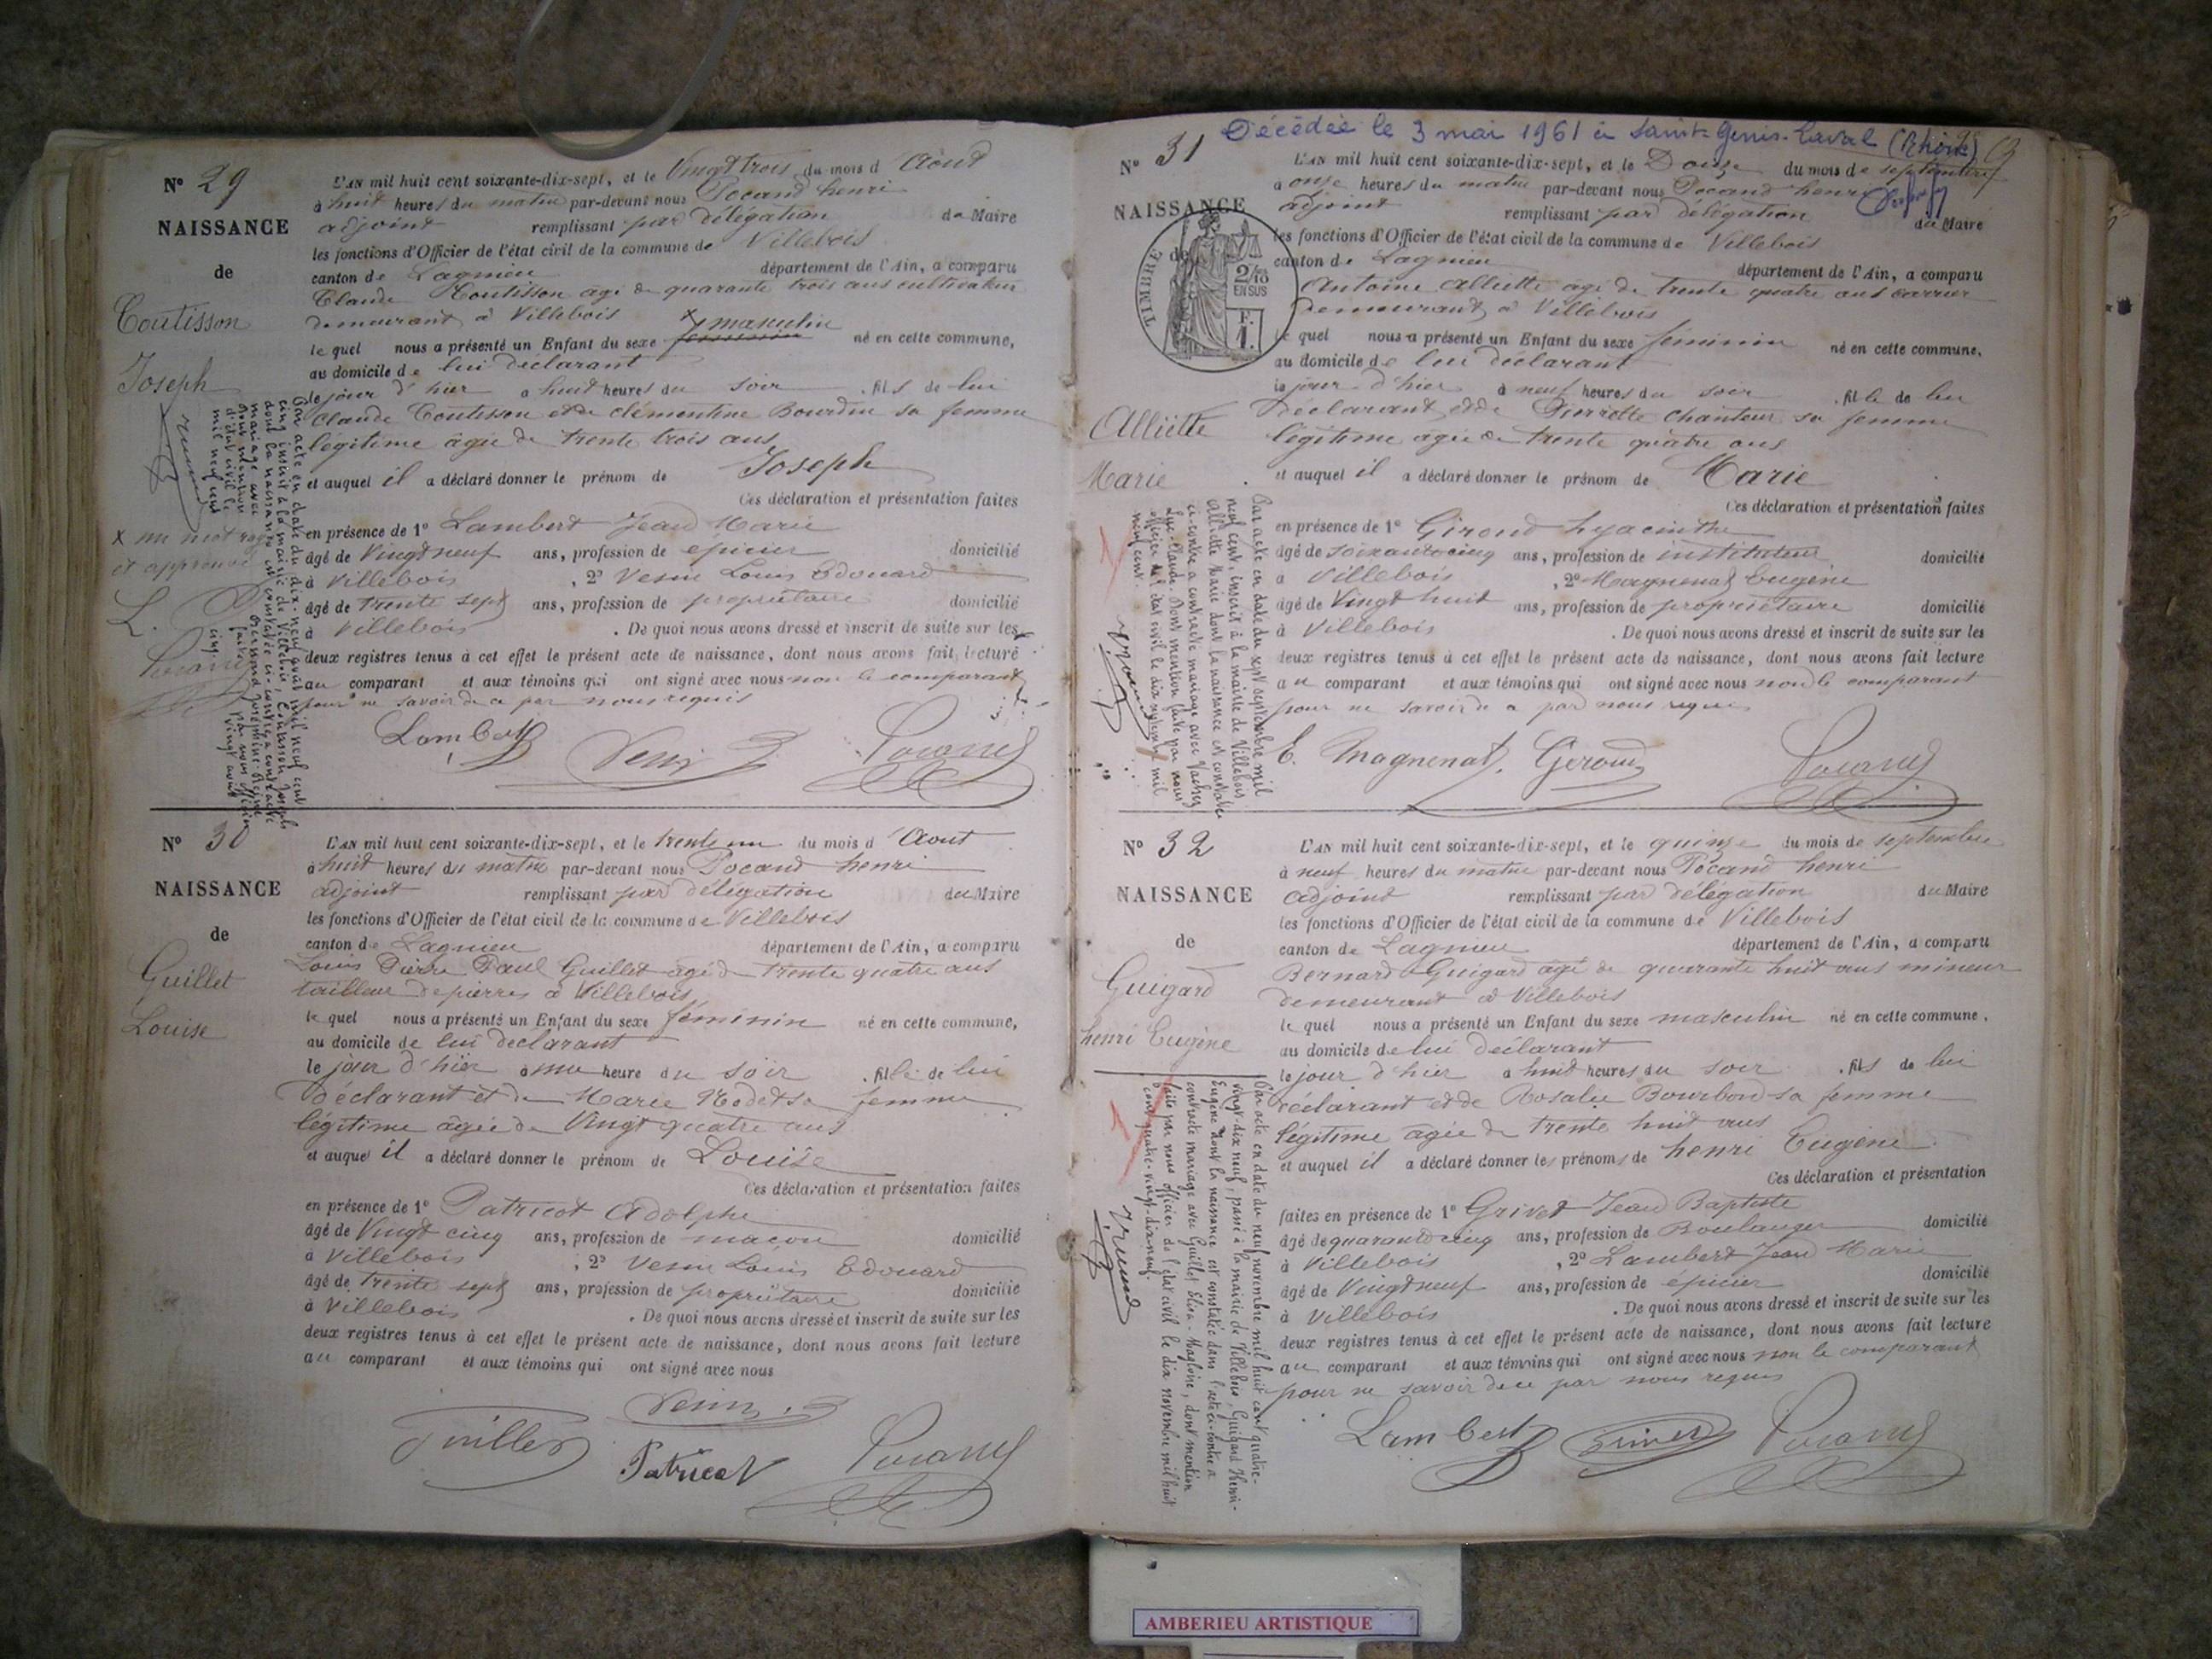 N° 29
NAISSANCE
de
Coutisson
Joseph
x un mot rayé
et approuvé
L'AN mil huit cent soixante-dix-sept, et le Vingt trois du mois d'Août
à huit heures du matin par-devant nous Pocand henri
adjoint remplissant par délégation du Maire
les fonctions d'Officier de l'état civil de la commune de Villebois
canton de Lagnieu département de l'Ain, a comparu
Claude Coutisson âgé de quarante trois ans cultivateur
demeurant à Villebois
le quel nous a présenté un Enfant du sexe x masculin né en cette commune,
au domicile de lui déclarant
le jour d'hier à huit heures du soir . fils de lui
Claude Coutisson et de Clémentine Bourdin sa femme
légitime âgée de trente trois ans
et auquel il a déclaré donner le prénom de Joseph
Ces déclaration et présentation faites
en présence de 1° Lambert Jean Marie
âgé de Vingt neuf ans, profession de épicier domicilié
à Villebois , 2° Vesin Louis Edouard
âgé de trente sept ans, profession de propriétaire domicilié
à Villebois . De quoi nous avons dressé et inscrit de suite sur les
deux registres tenus à cet effet le présent acte de naissance, dont nous avons fait lecture
au comparant et aux témoins qui ont signé avec nous non le comparant
pour ne savoir de ce par nous requis
Lambert Vesin Pocand
N° 30
NAISSANCE
de
Guillet
Louise
L'AN mil huit cent soixante-dix-sept, et le trente un du mois d'Aout
à huit heures du matin par-devant nous Pocand henri
adjoint remplissant par délégation du Maire
les fonctions d'Officier de l'état civil de la commune de Villebois
canton de Lagnieu département de l'Ain, a comparu
Louis Pierre Paul Guillet âgé de trente quatre ans
tailleur de pierres à Villebois
le quel nous a présenté un Enfant du sexe féminin né en cette commune,
au domicile de lui déclarant
le jour d'hier à une heure du soir . fille de lui
Déclarant et de Marie sa femme
légitime âgée de Vingt quatre ans
et auquel il a déclaré donner le prénom de Louise
Ces déclaration et présentation faites
en présence de 1° Patricot Adolphe
âgé de Vingt cinq ans, profession de maçon domicilié
à Villebois , 2° Vesin Louis Edouard
âgé de trente sept ans, profession de propriétaire domicilié
à Villebois . De quoi nous avons dressé et inscrit de suite sur les
deux registres tenus à cet effet le présent acte de naissance, dont nous avons fait lecture
au comparant et aux témoins qui ont signé avec nous
Guillet Vesin Patricot Pocand
Décédée le 3 mai 1961 à Saint-Genis-Laval (Rhône)
N° 31
NAISSANCE
de
TIMBRE
2/10
EN SUS
F.
1.
Alliette
Marie
L'AN mil huit cent soixante-dix-sept, et le Douze du mois de septembre
à onze heures du matin par-devant nous Pocand henri
adjoint remplissant par délégation du Maire
les fonctions d'Officier de l'état civil de la commune de Villebois
canton de Lagnieu département de l'Ain, a comparu
Antoine Alliette âgé de trente quatre ans carrier
Demeurant à Villebois
le quel nous a présenté un Enfant du sexe féminin né en cette commune,
au domicile de lui déclarant
le jour d'hier à neuf heures du soir . fille de lui
déclarant et de Pierrette Chanteur sa femme
légitime âgée de trente quatre ans
et auquel il a déclaré donner le prénom de Marie
Ces déclaration et présentation faites
en présence de 1° Giroud hyacinthe
âgé de soixante cinq ans, profession de instituteur domicilié
à Villebois , 2° Magnenat Eugène
âgé de Vingt huit ans, profession de propriétaire domicilié
à Villebois . De quoi nous avons dressé et inscrit de suite sur les
deux registres tenus à cet effet le présent acte de naissance, dont nous avons fait lecture
au comparant et aux témoins qui ont signé avec nous non le comparant
pour ne savoir de ce par nous requis
E. Magnenat. Giroud Pocand
Par acte en date du sept septembre mil
neuf cent, inscrit à la mairie de Villebois
Alliette Marie dont la naissance est constatée
ci-contre a contracté mariage avec Vachez
Luc-Claude. Dont mention faite par nous
officier de l'état civil le dix septembre mil
neuf cent.
N° 32
NAISSANCE
de
Guigard
henri Eugène
L'AN mil huit cent soixante-dix-sept, et le quinze du mois de septembre
à neuf heures du matin par-devant nous Pocand henri
adjoint remplissant par délégation du Maire
les fonctions d'Officier de l'état civil de la commune de Villebois
canton de Lagnieu département de l'Ain, a comparu
Bernard Guigard âgé de quarante huit ans mineur
demeurant à Villebois
le quel nous a présenté un Enfant du sexe masculin né en cette commune,
au domicile de lui déclarant
le jour d'hier à huit heures du soir . fils de lui
déclarant et de Rosalie Bourbon sa femme
légitime âgée de trente huit ans
et auquel il a déclaré donner les prénoms de henri Eugène
Ces déclaration et présentation
faites en présence de 1° Grivet Jean Baptiste
âgé de quarante cinq ans, profession de Boulanger domicilié
à Villebois , 2° Lambert Jean Marie
âgé de Vingt neuf ans, profession de épicier domicilié
à Villebois . De quoi nous avons dressé et inscrit de suite sur les
deux registres tenus à cet effet le présent acte de naissance, dont nous avons fait lecture
au comparant et aux témoins qui ont signé avec nous non le comparant
pour ne savoir de ce par nous requis
Lambert Grivet Pocand
Par acte en date du neuf novembre mil huit cent quatre-
vingt-dix neuf, passé à la mairie de Villebois, Guigard Henri-
Eugène dont la naissance est constatée dans l'acte ci-contre a
contracté mariage avec Guillet Elisa-Magloire, dont mention
faite par nous officier de l'état civil le dix novembre mil huit
cent quatre-vingt-dix neuf
AMBERIEU ARTISTIQUE